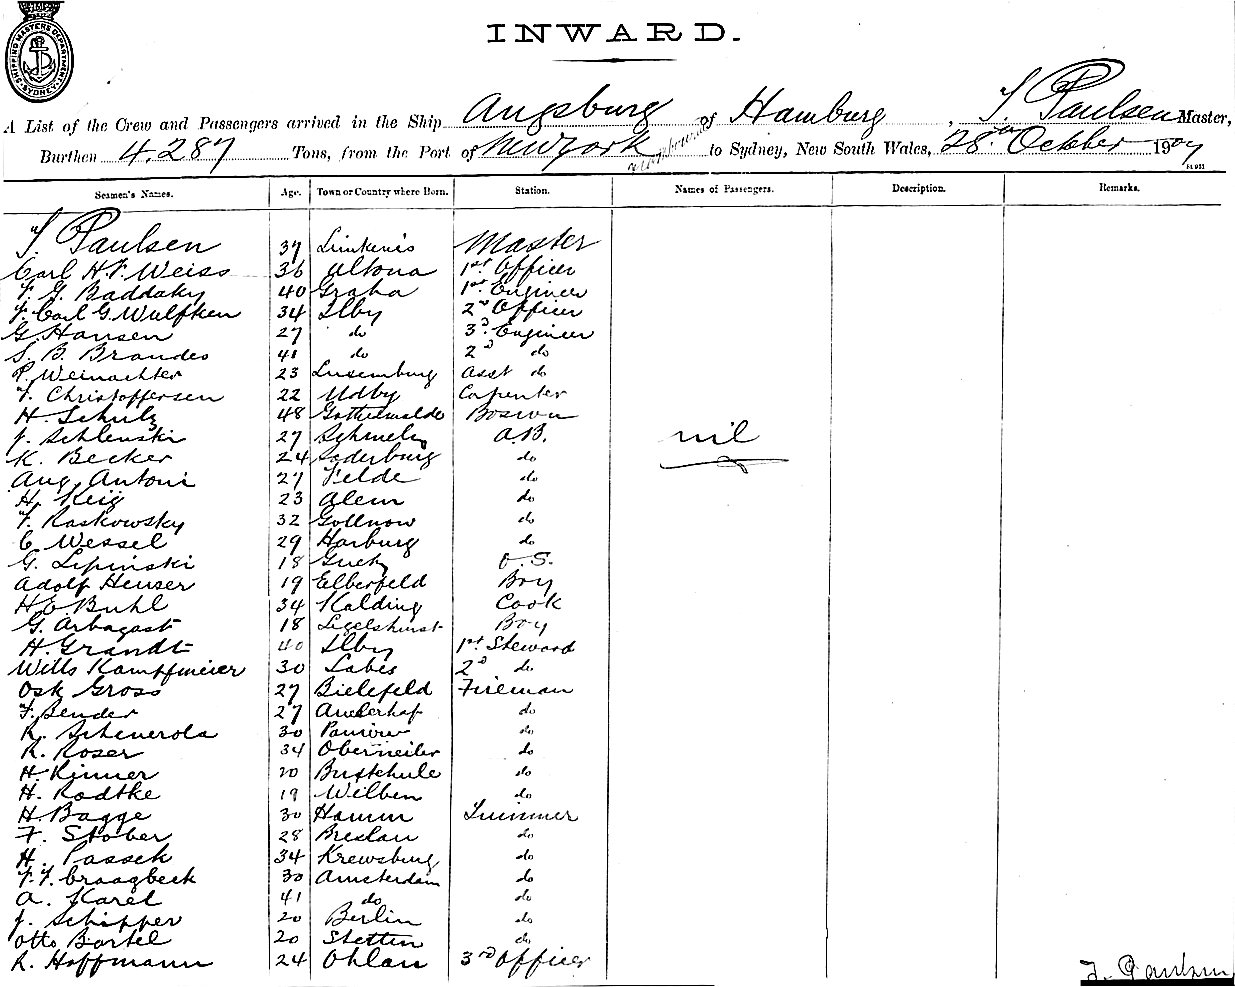 SHIPPING MASTERS DEPARTMENT SYDNEY
INWARD.
A List of the Crew and Passengers arrived in the Ship Augsburg of Hamburg, T. Paulsen Master,
Burthen 4,287 Tons, from the Port of New York to Sydney, New South Wales, 28th October 1907
Seamen's Names. Age. Town or Country where Born. Station. Names of Passengers. Description. Remarks.
T. Paulsen 37 Master
Carl H. F. Weiss 36 Altona 1st Officer
F. G. Baddaky 40 1st Engineer
F. Carl G. Wulfken 34 Ilby 2nd Officer
G. Hansen 27 do 3d Engineer
S. B. Brandes 41 do 2d do
P. Weinachter 23 Luxemburg Asst do
F. Christoffersen 22 Udby Carpenter
H. Schulz 48 Boswn
J. Schlenski 27 A.B. nil
K. Becker 24 Soderburg do
Aug. Antoni 27 Velde do
H. Keig 23 Alem do
F. Raskowsky 32 Gollnow do
C. Wessel 29 Harburg do
G. Lipinski 18 O.S.
Adolf Heuser 19 Elberfeld Boy
H. E. Buhl 34 Kolding Cook
G. Arbogast 18 Legelshurst Boy
H. Grandt 40 Ilby 1st Steward
Wills Kampfmeier 30 Labes 2d do
Osk Gross 27 Bielefeld Fireman
F. Bender 27 do
R. Scheuerola 30 do
R. Roser 34 Oberweiler do
H. Kinner 20 Buxtehule do
H. Radtke 19 Wilben do
H. Bagge 30 Hamm Trimmer
F. Stober 28 Breslau do
H. Passek 34 Krewsburg do
F. F. Craagbeek 30 Amsterdam do
A. Karel 41 do do
J. Schipper 20 Berlin do
Otto Bartel 20 Stettin do
R. Hoffmann 24 Ohlau 3rd Officer
T. Paulsen